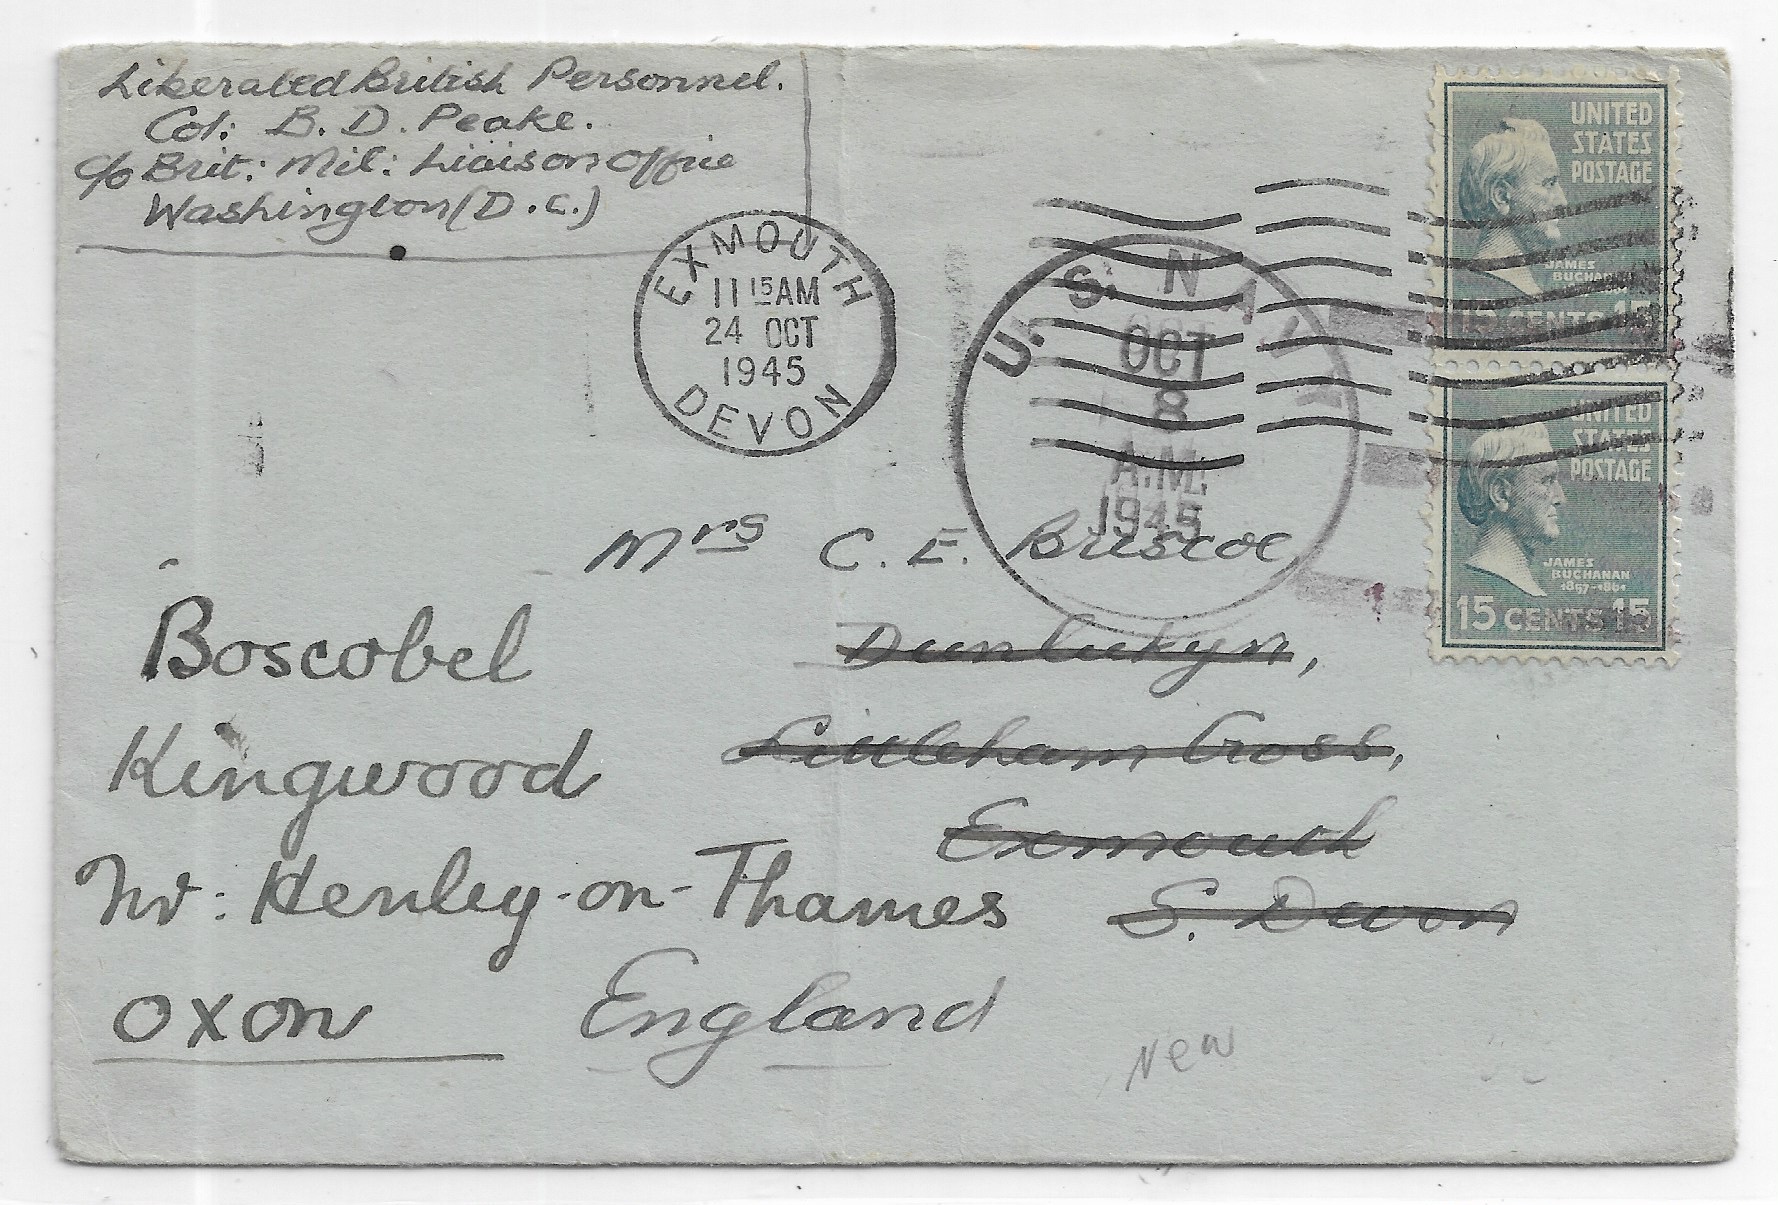 Liberated British Personnel.
Col: B. D. Peake.
c/o Brit: Mil: Liaison Office
Washington (D.C.)
UNITED
STATES
POSTAGE
JAMES
BUCHANAN
15 CENTS 15
EXMOUTH
11 15 AM
24 OCT
1945
DEVON
U. S. NAVY
OCT
8
A.M.
1945
UNITED
STATES
POSTAGE
JAMES
BUCHANAN
1857-1861
15 CENTS 15
Mrs C. E. Briscoe
Littleham Cross,
Exmouth
S. Devon
Boscobel
Kingwood
Nr: Henley-on-Thames
OXON
England
New